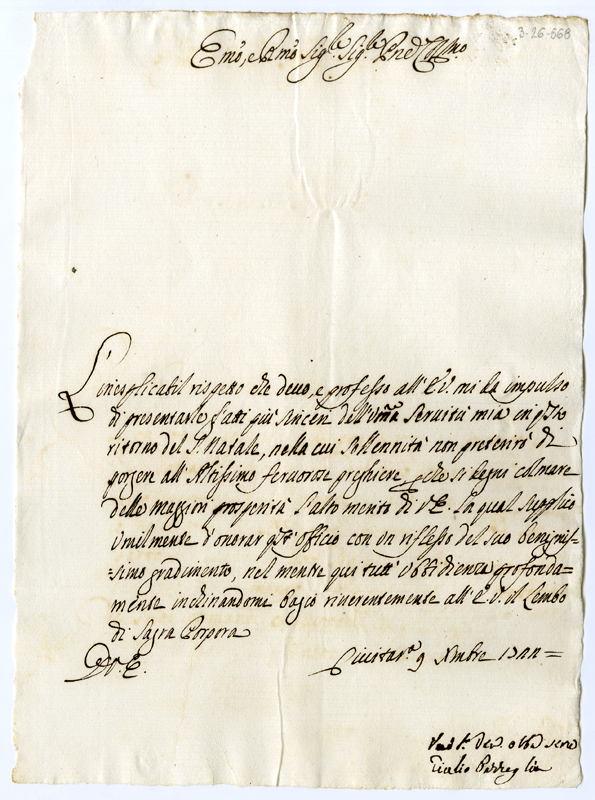 3-26-668
Emo, e Rmo Sigre. Sigre. Pne Colmo.
L'inesplicabil rispetto che devo, e professo all'E.V. mi dà impulso
di presentarle gl'atti più sinceri dell'vmã Servitù mia in qsto
ritorno del S. Natale, nella cui Sollennità non preterirò di
porgere all'Altissimo fervorose preghiere, che si degni colmare
delle maggiori prosperità l'alto merito di V.E. La qual supplico
vmilmente d'onorar qst'Officio con vn riflesso del suo benignis=
=simo gradimento, nel mentre qui tutt'obbidienza profonda=
mente inchinandomi bagio riverentemente all'E.V. il Lembo
di Sagra Porpora
Di V.E.
Civitava. 9 Xmbre 1722=
Vmo Devo obbo serre
Giulio